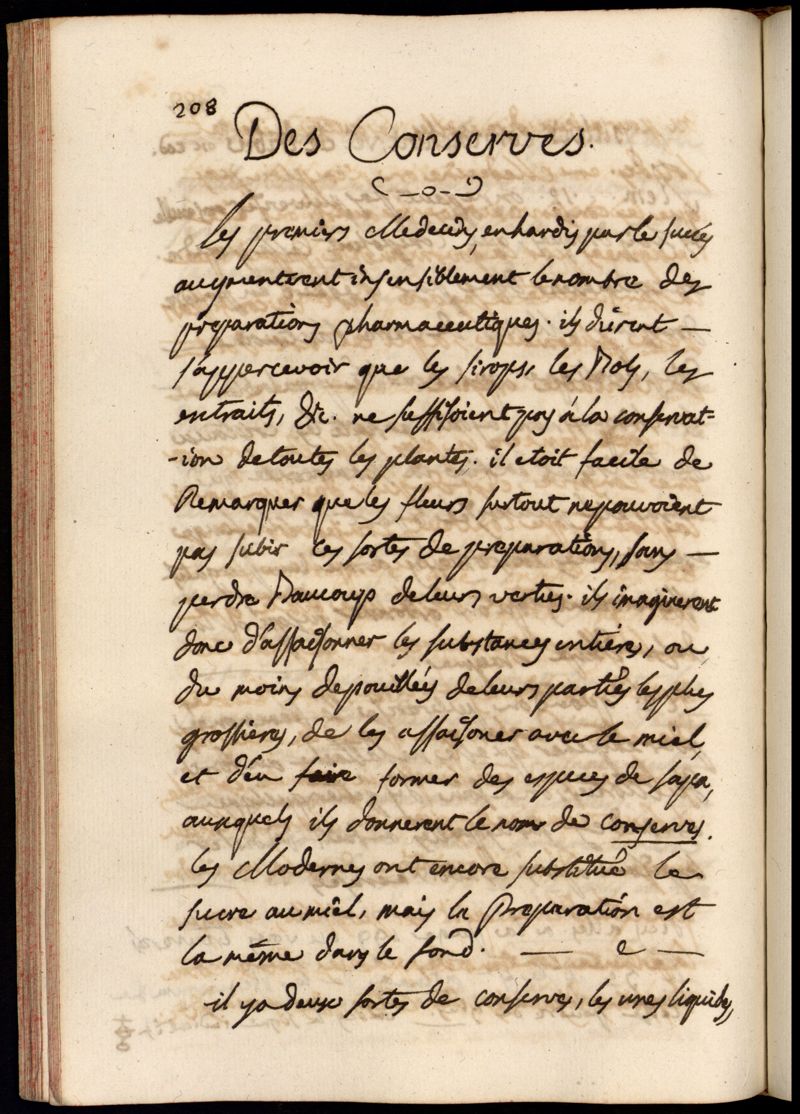 208
Des Conserves.
Les premiers Medecins, enhardis par le succes
augmenterent insensiblement le nombre des
preparations pharmaceutiques. ils durent —
s'appercevoir que les sirops, les Robs, les
extraits, &c. ne suffisoient pas à la conservat=
-ion de toutes les plantes. il etoit facile de
Remarquer que les fleurs surtout ne pouvoient
pas subir ces sortes de preparations, sans —
perdre Baucoup de leurs vertus. ils imaginerent
donc d'assaisonner les substances entières, ou
du moins depouillées de leurs parties les plus
grossieres, de les assaisoner avec le miel,
et d'en faire former des especes de sapa,
auxquels ils donnerent le nom de conserves.
les Modernes ont encore substitué le
sucre au miel, mais la Preparation est
la même dans le fond. —
il ya deux sortes de conserves, les unes liquides,